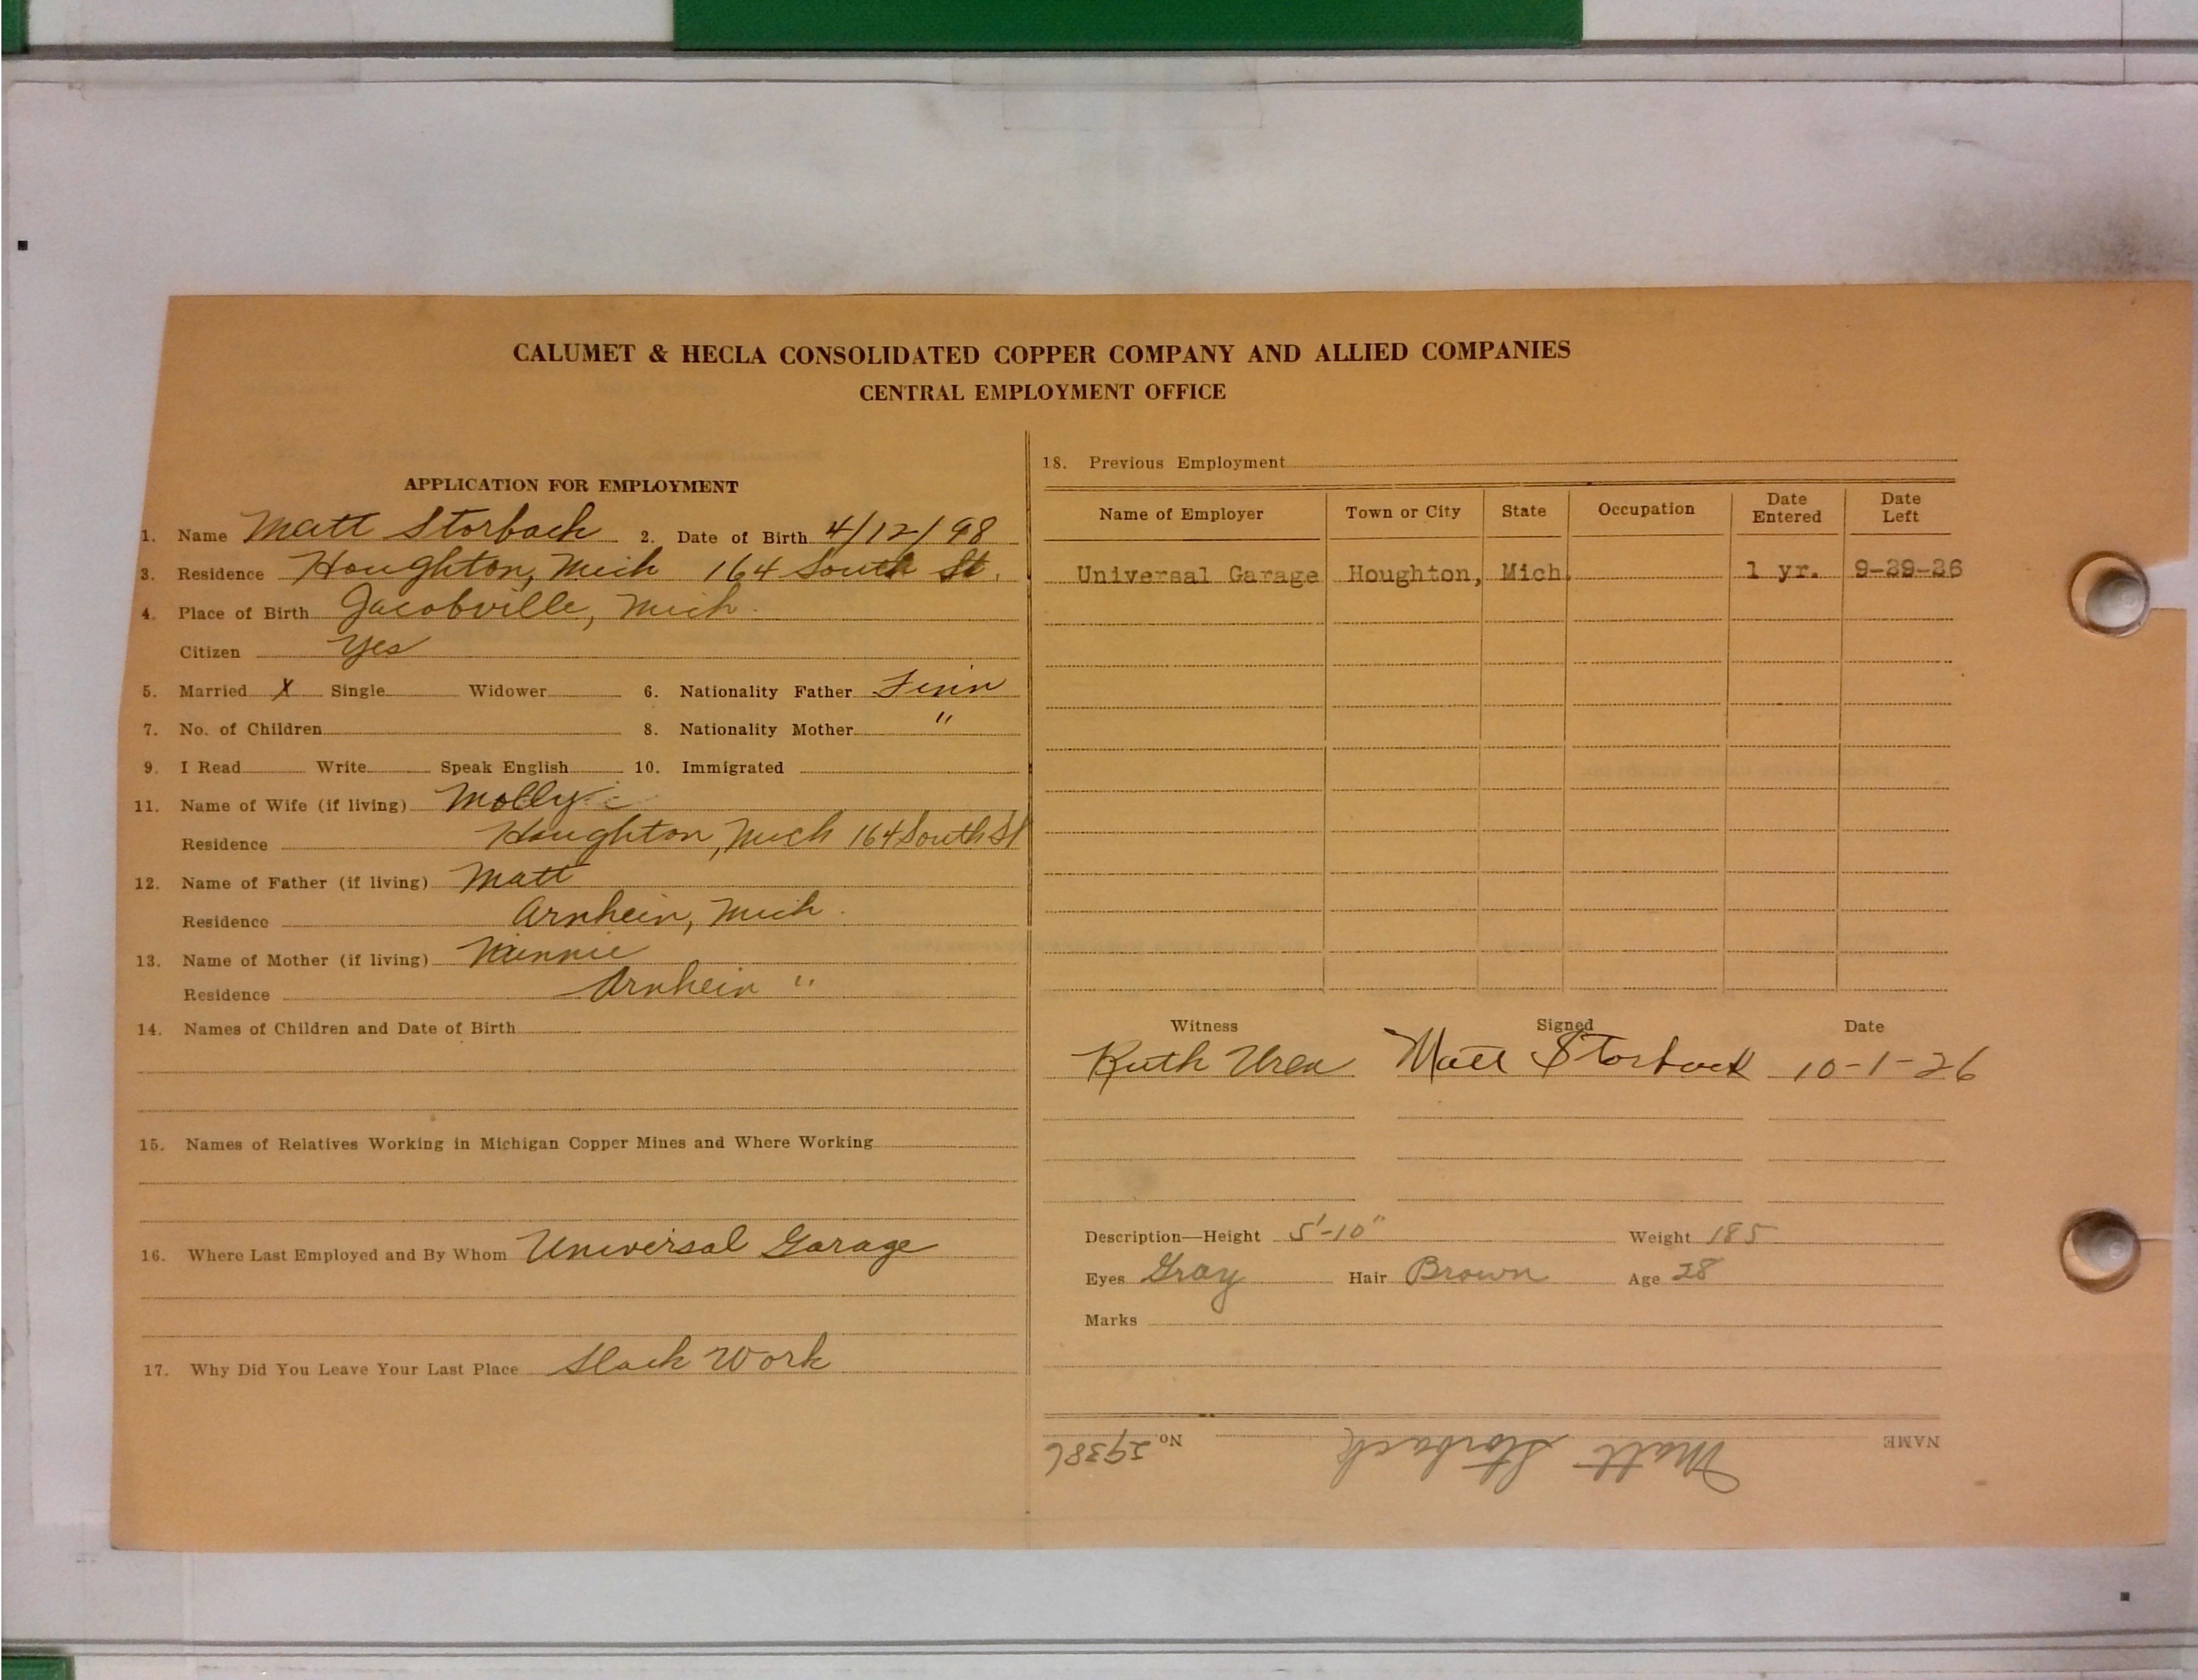 CALUMET & HECLA CONSOLIDATED COPPER COMPANY AND ALLIED COMPANIES
CENTRAL EMPLOYMENT OFFICE
APPLICATION FOR EMPLOYMENT
1. Name Matt Storbach 2. Date of Birth 4/12/98
3. Residence Houghton, Mich 164 South St.
4. Place of Birth Jacobville, Mich.
Citizen Yes
5. Married X Single Widower 6. Nationality Father Finn
7. No. of Children 8. Nationality Mother "
9. I Read Write Speak English 10. Immigrated
11. Name of Wife (if living) Molly
Residence Houghton, Mich 164 South St
12. Name of Father (if living) Matt
Residence Arnhein, Mich.
13. Name of Mother (if living) Minnie
Residence Arnhein "
14. Names of Children and Date of Birth
15. Names of Relatives Working in Michigan Copper Mines and Where Working
16. Where Last Employed and By Whom Universal Garage
17. Why Did You Leave Your Last Place Slack Work
18. Previous Employment
Name of Employer Town or City State Occupation Date Entered Date Left
Universal Garage Houghton, Mich. 1 yr. 9-29-26
Witness Signed Date
Ruth Uren Matt Storback 10-1-26
Description—Height 5'-10" Weight 185
Eyes Gray Hair Brown Age 28
Marks
NAME Matt Storbach No. 29386